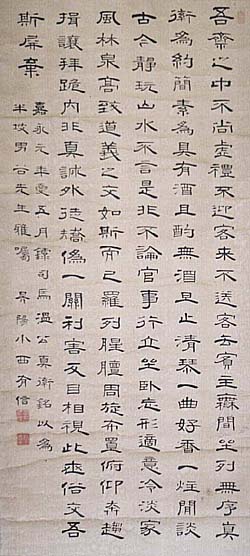 吾齋之中不尚虛禮不迎客來不送客去賓主無間坐列無序真
衛為約簡素為具有酒且酌無酒且止清琴一曲好香一炷閒談
古今靜玩山水不言是非不論官事行立坐臥忘形適意冷淡家
風林泉高致道義之交如斯而已羅列腥膻周旋布置俯仰奔趨
揖讓拜跪內非真誠外徒矯偽一關利害反目相視此世俗交吾
斯屏棄
嘉永元年五月錄司馬溫公真衛銘以為
先生雅囑 陽小西有信